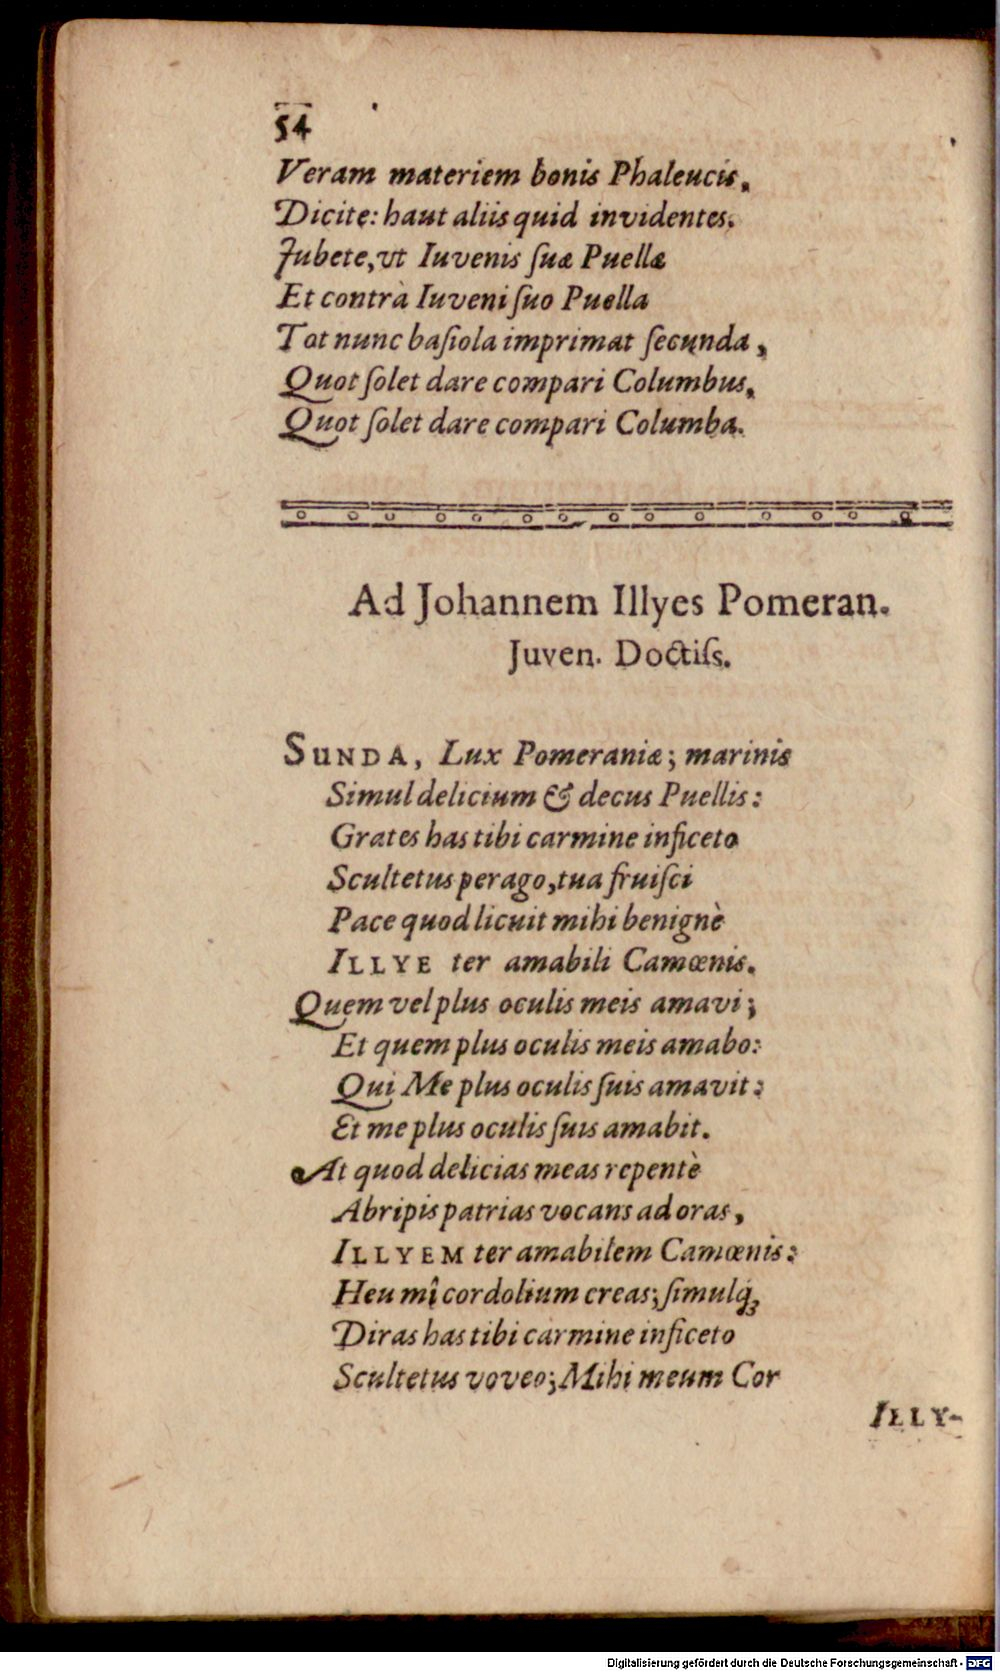 54
Veram materiem bonis Phaleucis.
Dicite: haut aliis quid invidentes.
Jubete, vt Iuvenis ſuæ Puellæ
Et contrà Iuveni ſuo Puella
Tot nunc baſiola imprimat ſecunda,
Quot ſolet dare compari Columbus,
Quot ſolet dare compari Columba.
Ad Johannem Illyes Pomeran.
Juven. Doctiſs.
SUNDA, Lux Pomeraniæ; marinis
Simul delicium & decus Puellis:
Grates has tibi carmine inficeto
Scultetus perago, tua fruiſci
Pace quod licuit mihi benignè
ILLYE ter amabili Camœnis.
Quem vel plus oculis meis amavi;
Et quem plus oculis meis amabo:
Qui Me plus oculis ſuis amavit:
Et me plus oculis ſuis amabit.
At quod delicias meas repentè
Abripis patrias vocans ad oras,
ILLYEM ter amabilem Camœnis:
Heu mî cordolium creas; ſimulq́ꝫ
Diras has tibi carmine inficeto
Scultetus voveo; Mihi meum Cor
ILLY-
Digitalisierung gefördert durch die Deutsche Forschungsgemeinschaft - DFG